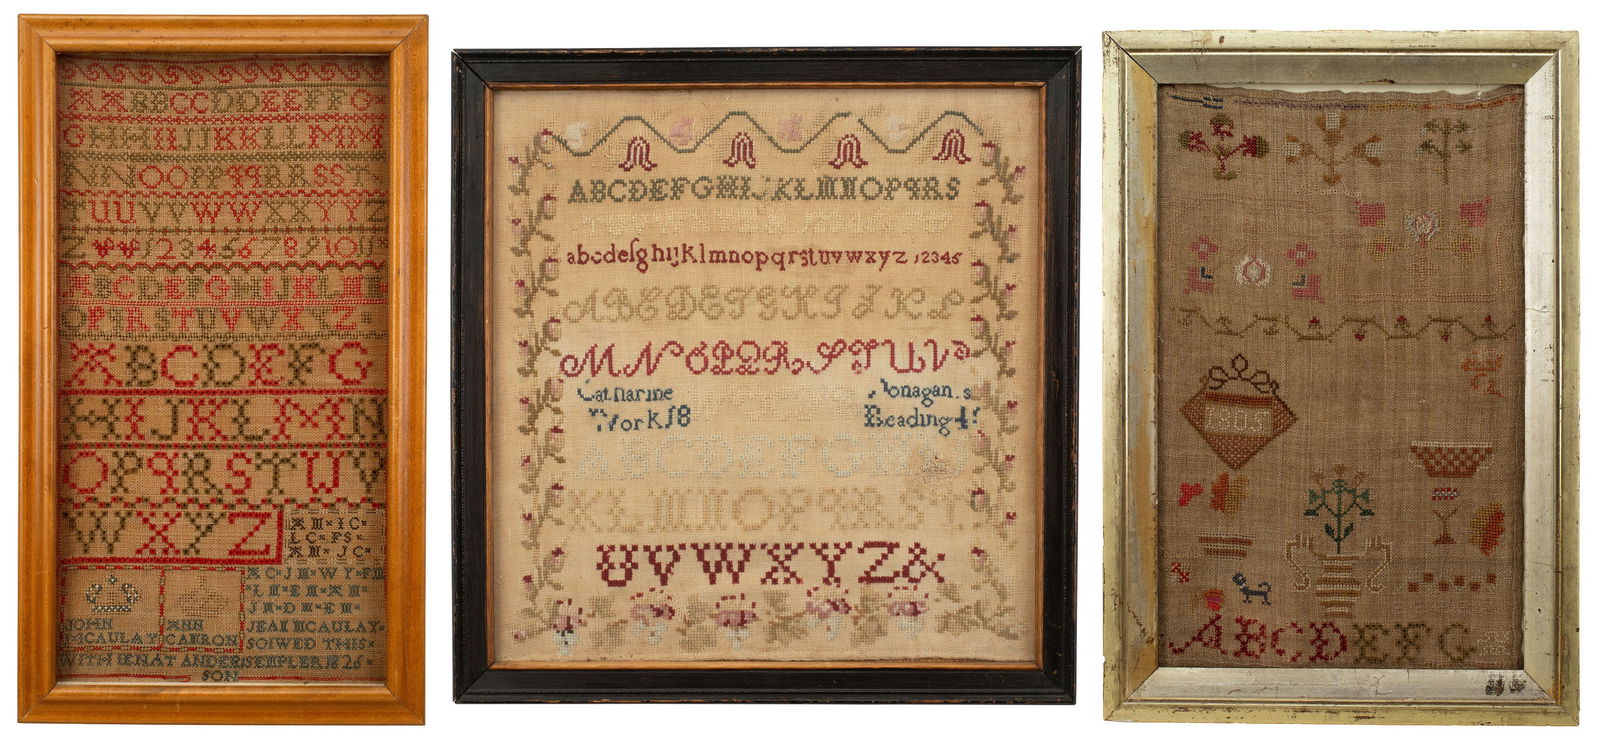 AABBCCDDEEFFG
GHHIIJJKKLLMM
NNOOPPqqRRSST
TUUVVWWXXYYZ
Z 1234567891OU
ABCDEFGHIJKLM
OPqRSTUVWXYZ
ABCDEFG
HIJKLMN
OPqRSTUV
WXYZ
AM·IC·
LC·FS·
AM·JC·
AC·JM·WY·FM
LM·EM·AM·
JM·DM·EM·
JOHN
MCAULAY
ANN
CAMRON
JEAN MCAULAY·
SOIWED THIS·
SEMPLER 1826·
ANDER
SON
ABCDEFGHIJKLMNOPqRS
abcdefghijklmnopqrstuvwxyz 12345
ABCDEFGHIJKL
MNOPQRSTUV
Catharine
Monagan.s
Work 18
Reading 4
ABCDEFGHIJ
KLMNOPqRST
UVWXYZ&
1805
ABCDEFG